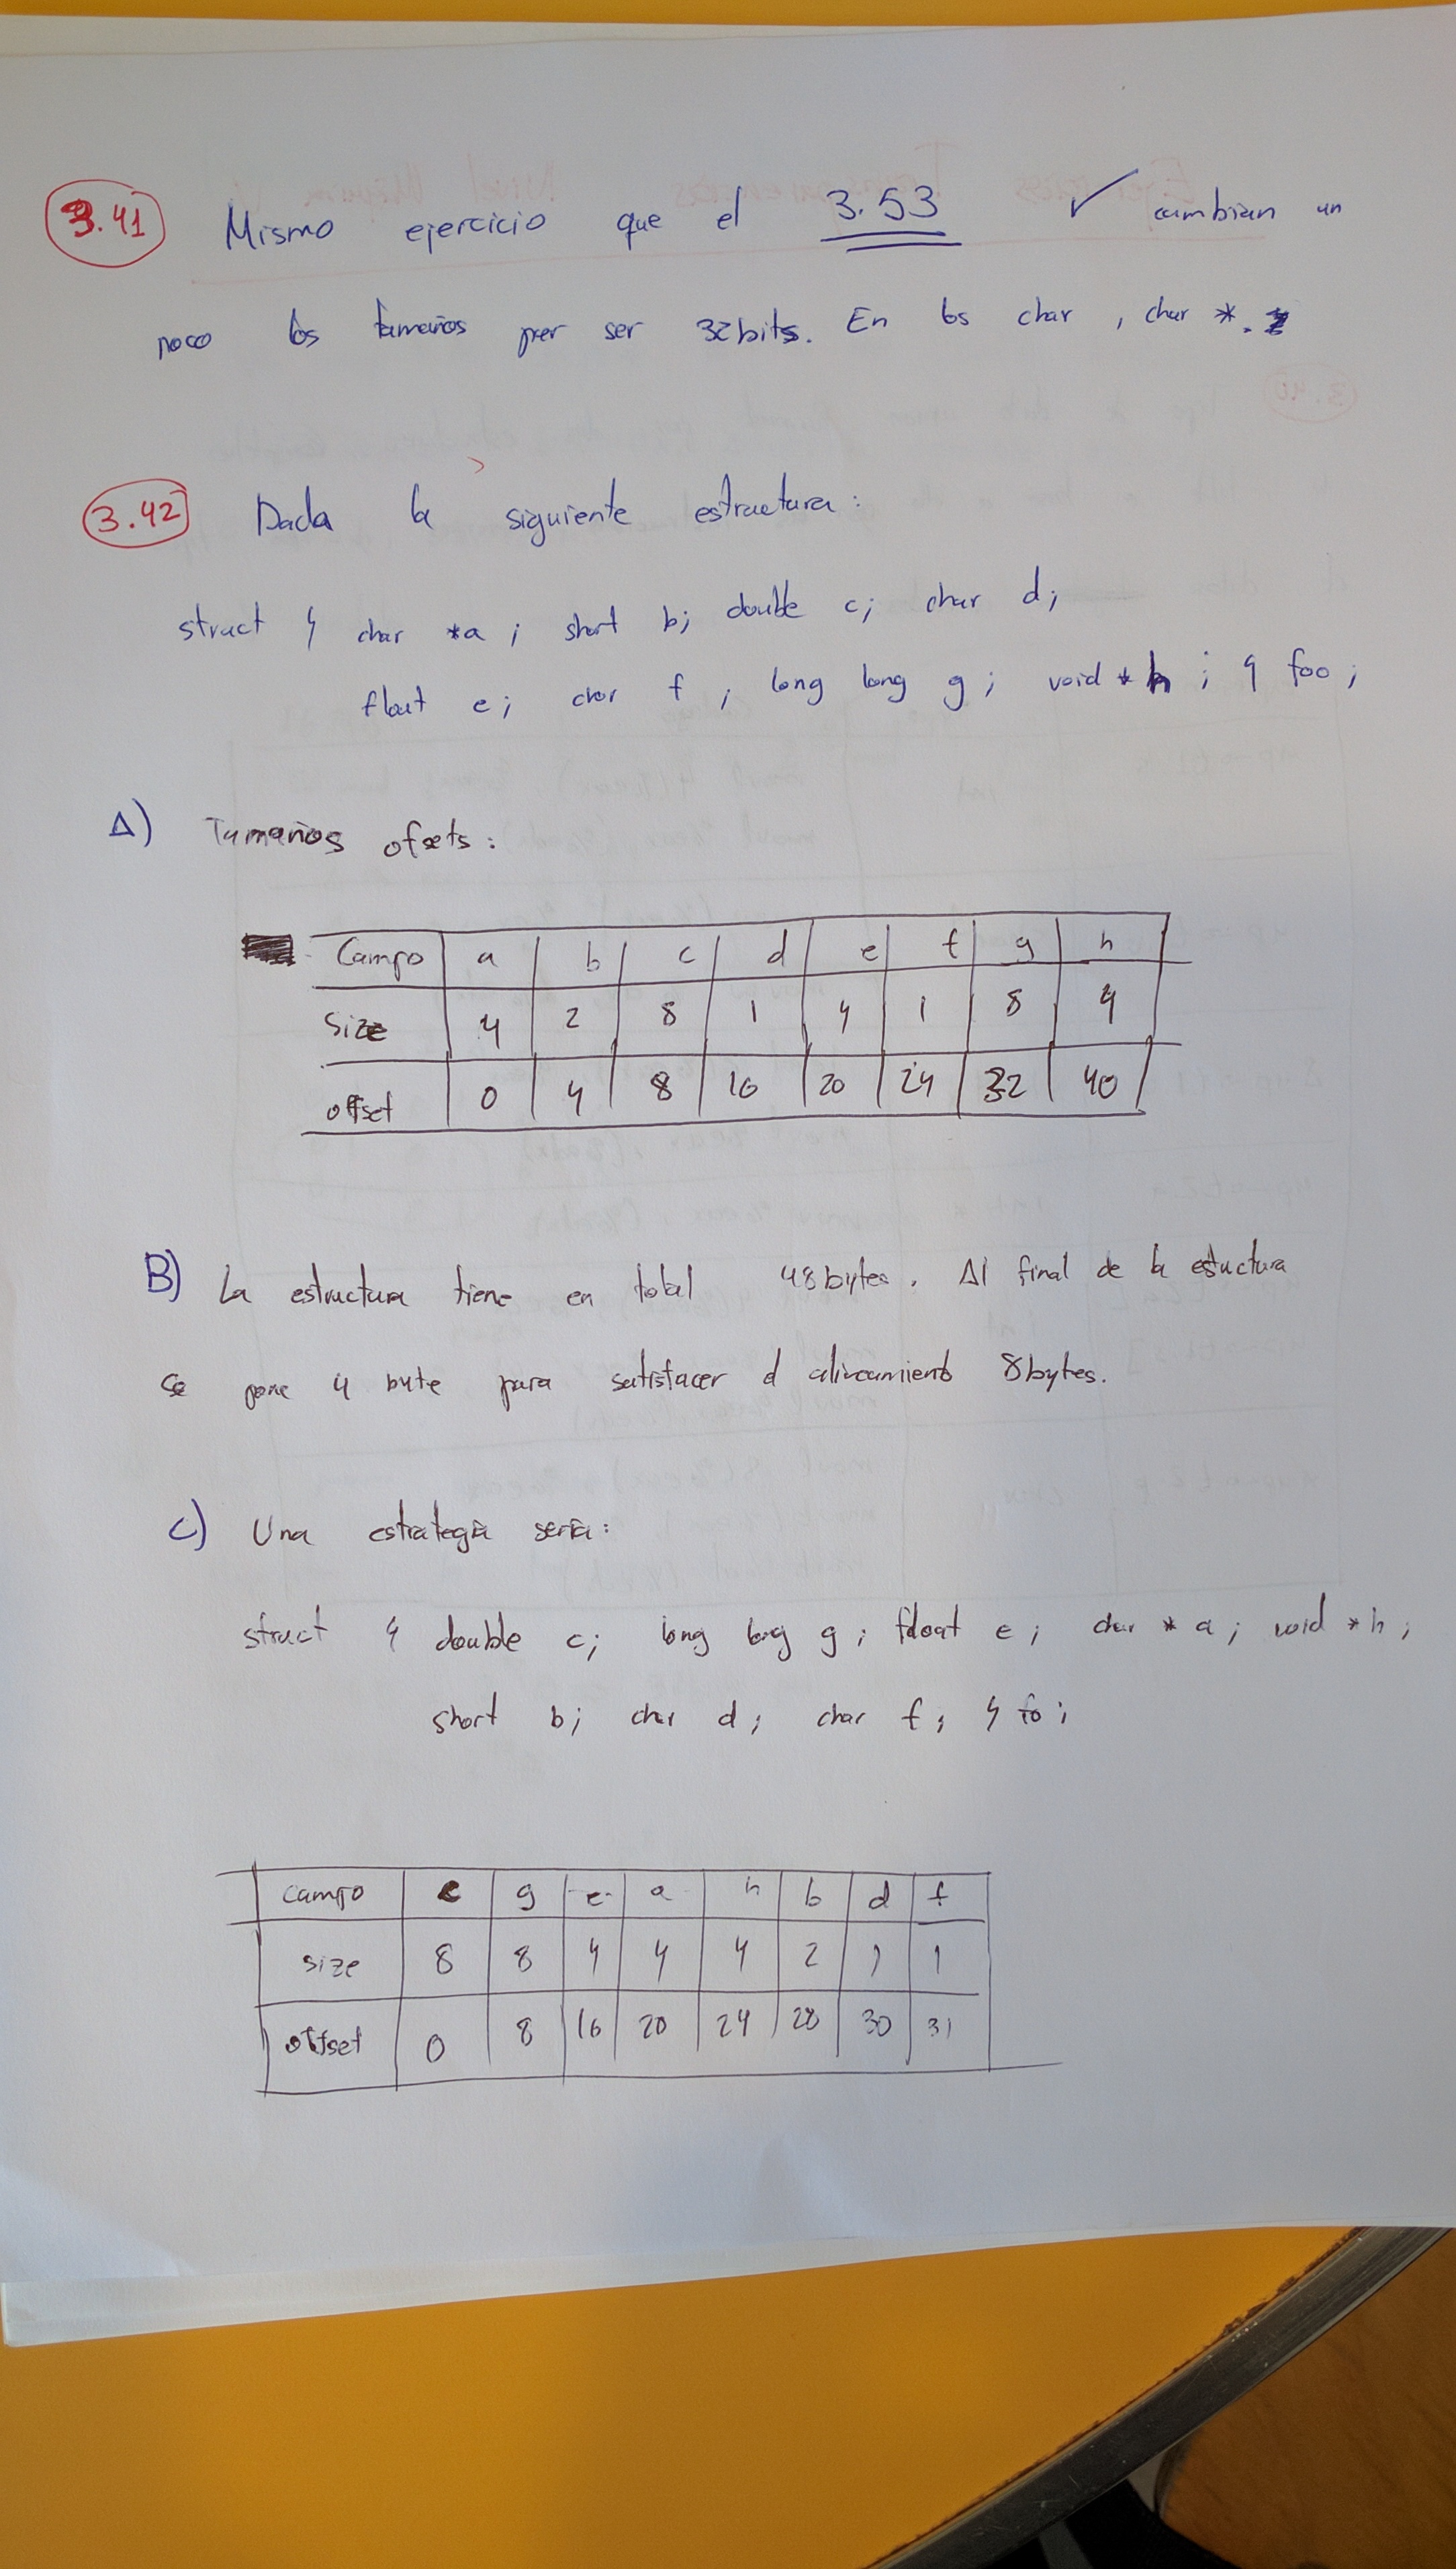 3.41 Mismo ejercicio que el 3.53 ✓ cambian un
poco los tamaños por ser 32bits. En los char, char *.
3.42 Dada la siguiente estructura:
struct { char *a; short b; double c; char d;
float e; char f; long long g; void *h; } foo;
A) Tamaños ofsets:
Campo a b c d e f g h
Size 4 2 8 1 4 1 8 4
offset 0 4 8 16 20 24 32 40
B) La estructura tiene en total 48bytes. Al final de la estuctura
se pone 4 byte para satisfacer el alineamiento 8bytes.
C) Una estrategia sería:
struct { double c; long long g; float e; char *a; void *h;
short b; char d; char f; } fo;
campo c g e a h b d f
size 8 8 4 4 4 2 1 1
offset 0 8 16 20 24 28 30 31